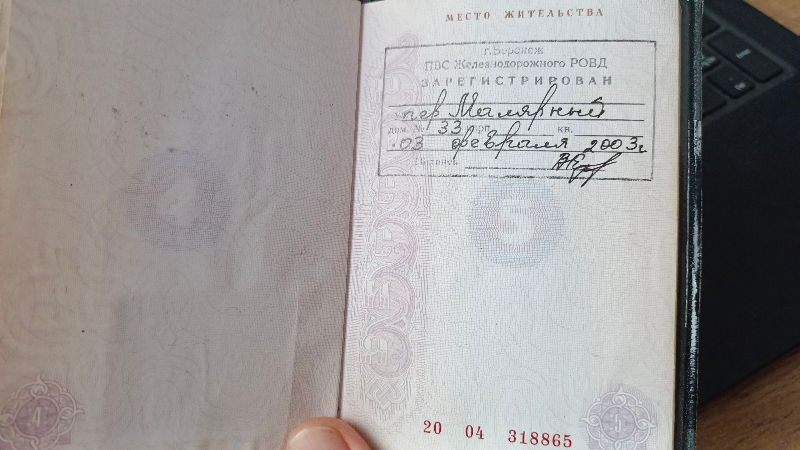 МЕСТО ЖИТЕЛЬСТВА
г. Воронеж
ПВС Железнодорожного РОВД
ЗАРЕГИСТРИРОВАН
пер Малярный
дом. № 33 корп. кв.
03 февраля 2003г
Подпись
4
5
4
5
20 04 318865